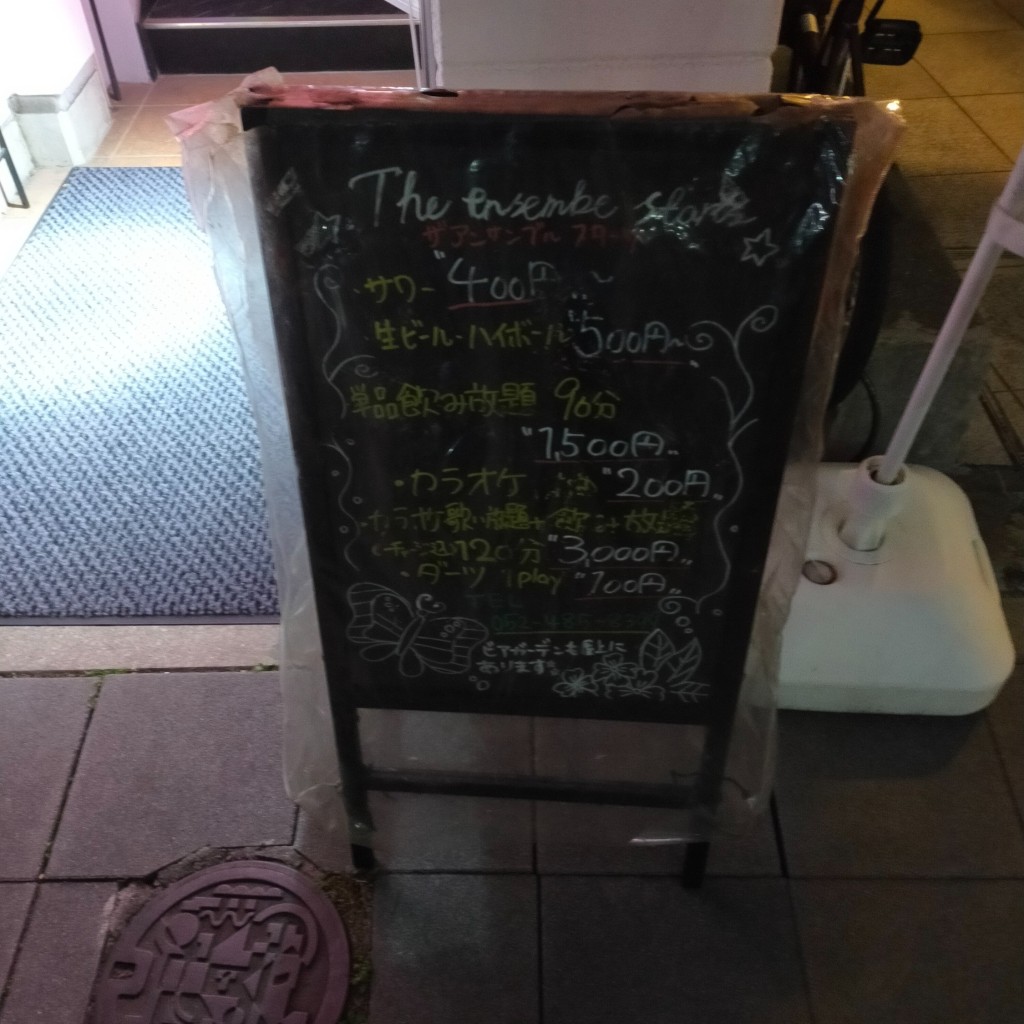 The ensembe stars
ザアンサンブル スターズ
・サワー "400円 〜
生ビール・ハイボール 500円〜
単品飲み放題 90分
"1,500円〟
・カラオケ "200円〟
・カラオケ歌い放題+飲み放題
120分 "3,000円〟
・ダーツ 1play "100円〟
TEL
ビアガーデンも屋上に
あります。